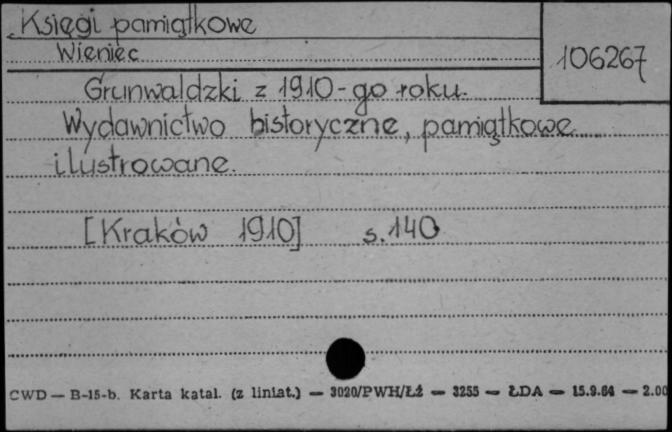 Księgi pamiątkowe
Wieniec
106267
Grunwaldzki z 1910-go roku.
Wydawnictwo historyczne, pamiątkowe
ilustrowane.
[Kraków 1910] s. 140
CWD — B-15-b. Karta katal. (z liniat.) — 3020/PWH/Łź — 3255 — ŁDA — 15.9.64 — 2.00